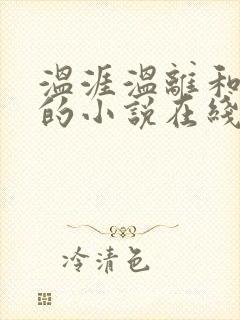 温涯温離和
的小说在綫
冷清色